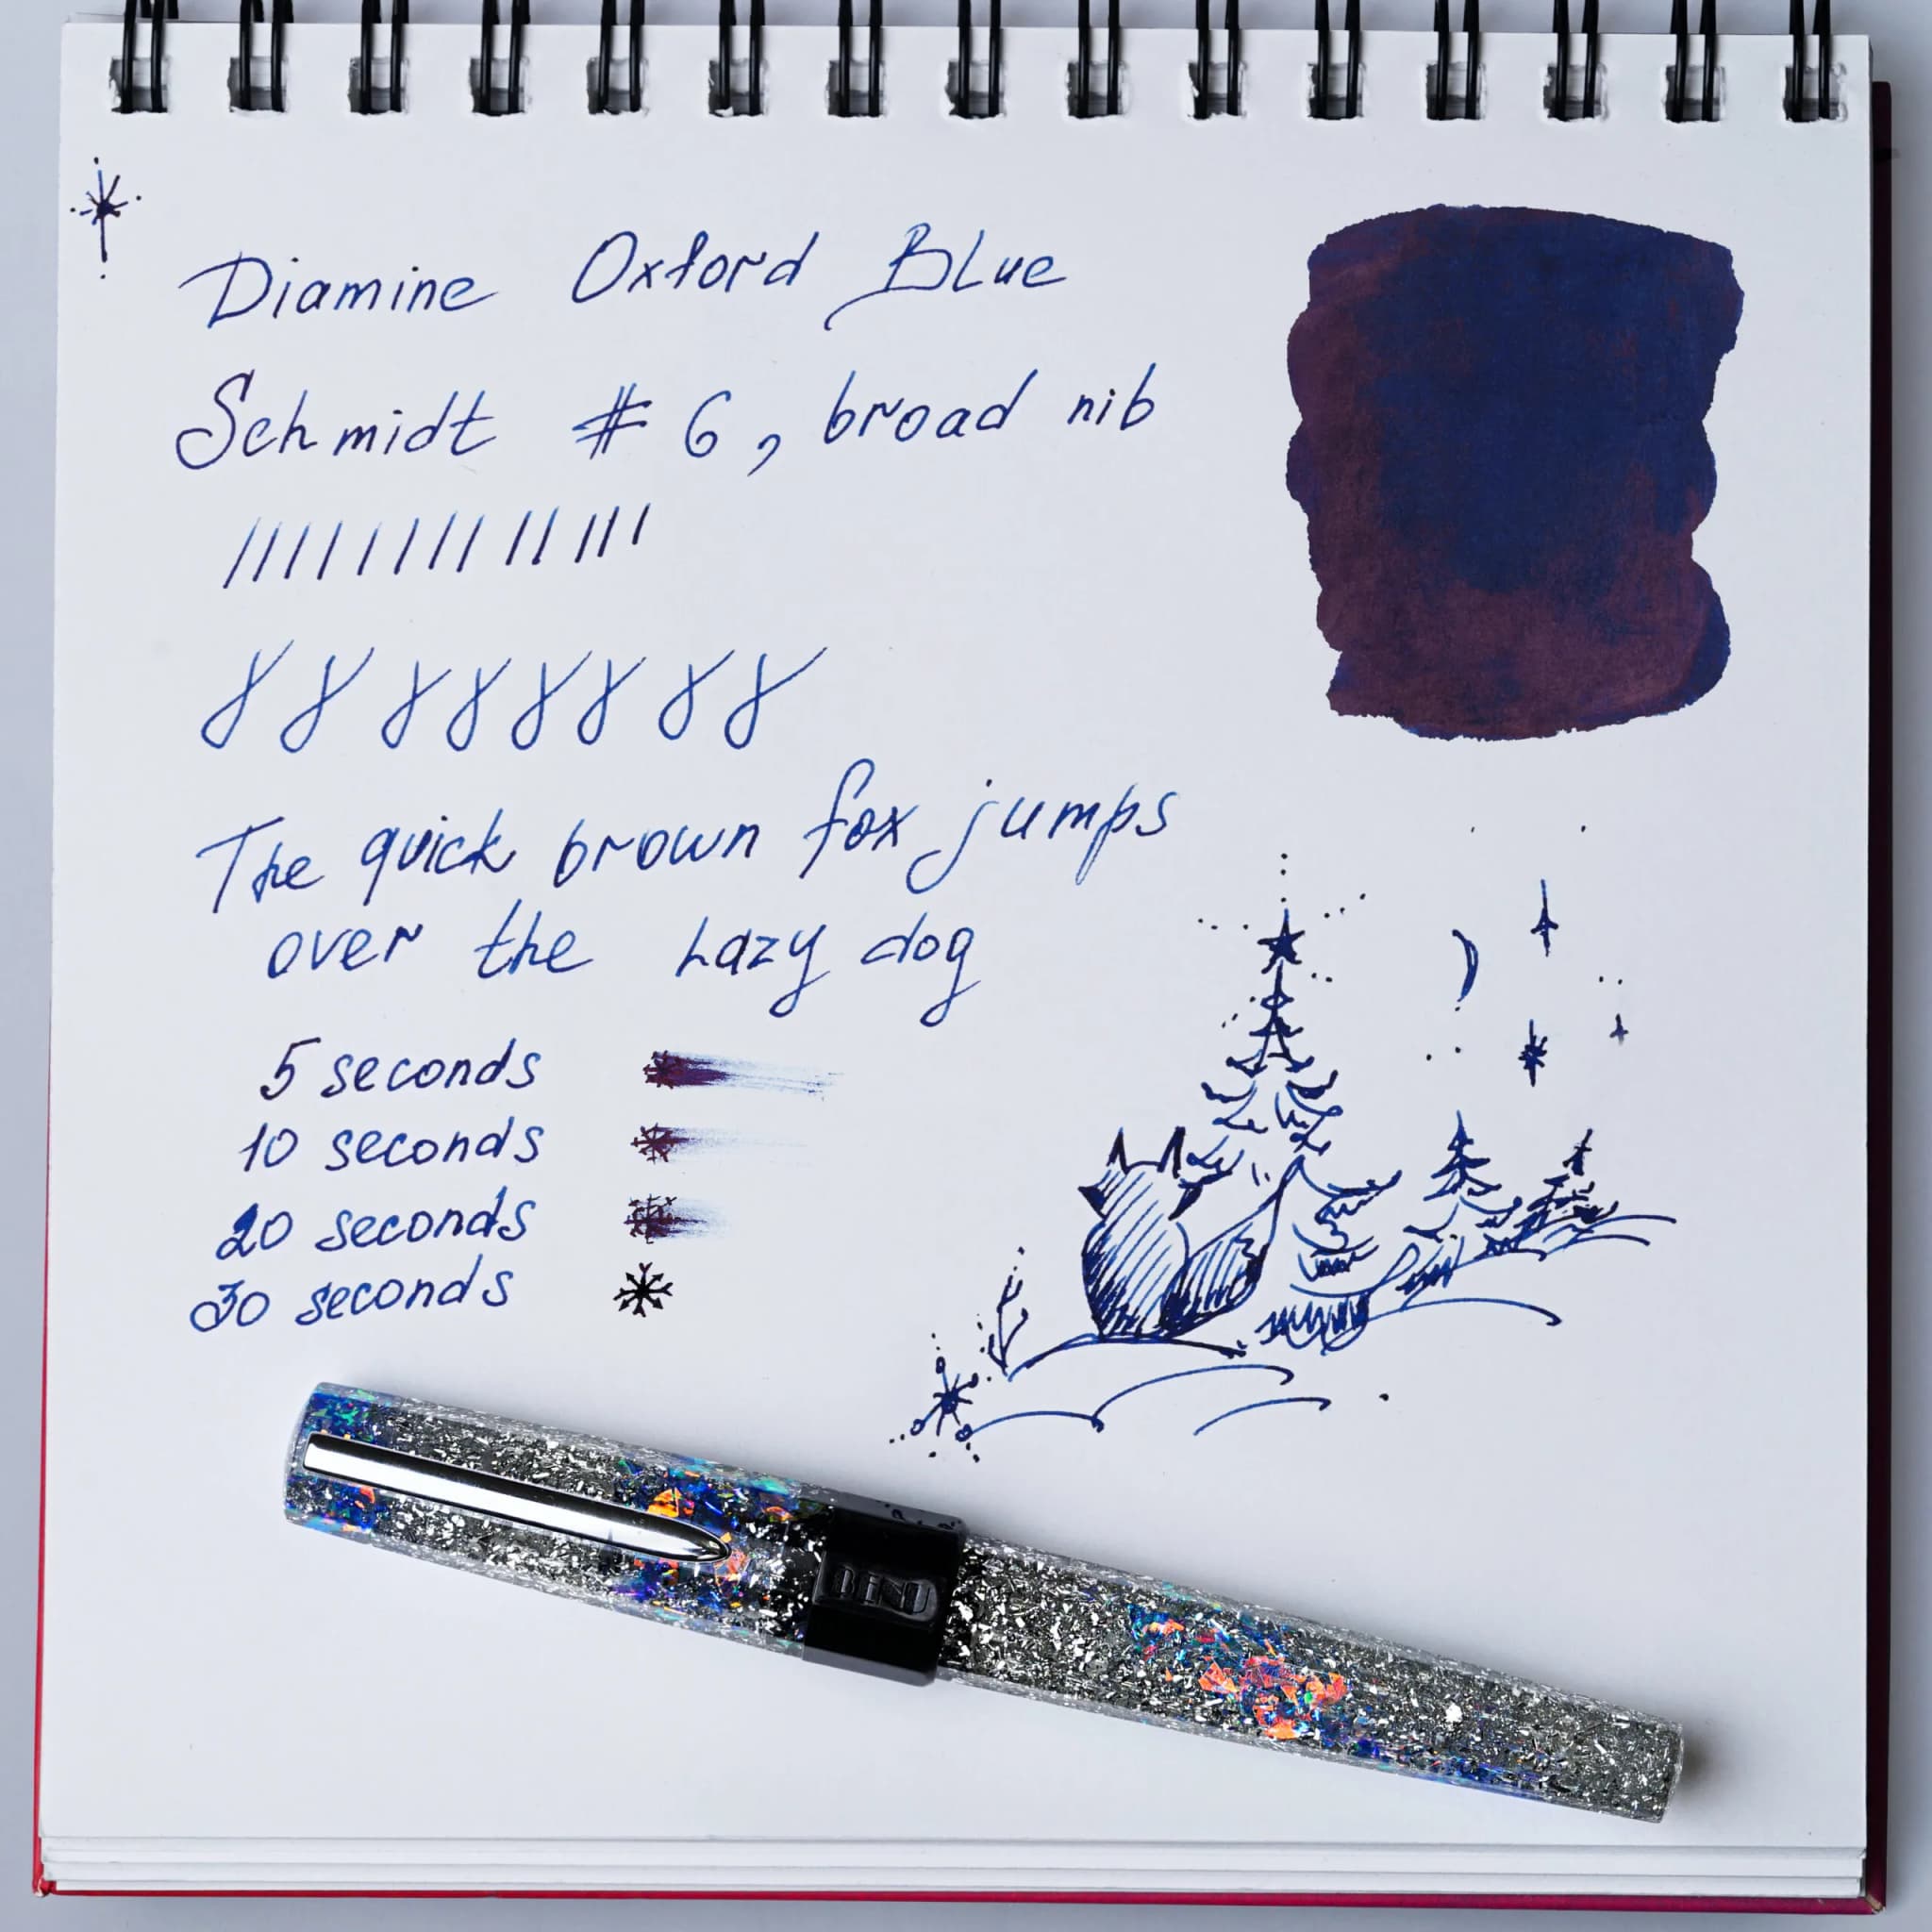 Diamine Oxford Blue
Schmidt # 6, broad nib
The quick brown fox jumps
over the Lazy dog
5 seconds
10 seconds
20 seconds
30 seconds